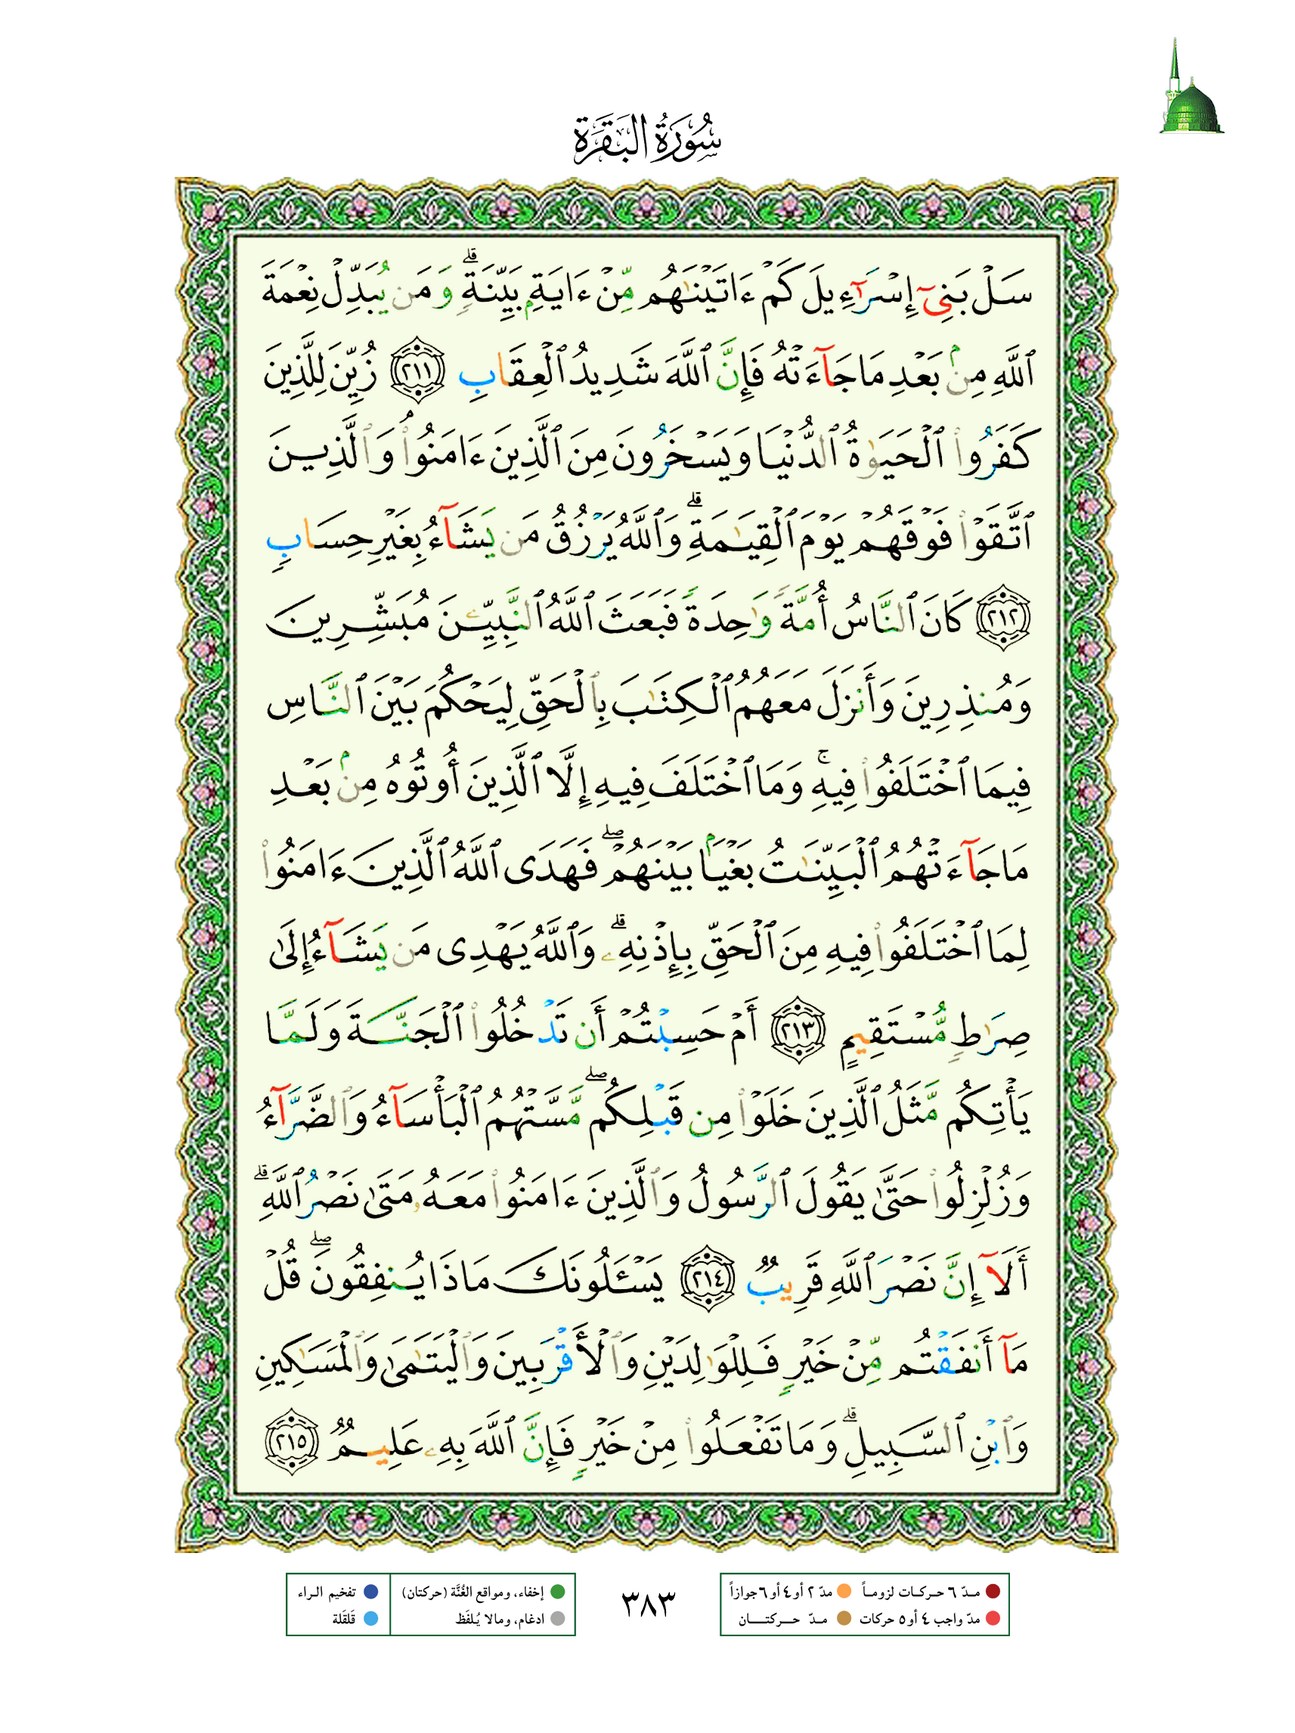 سُورَةُ البَقَرَة
سَلْ بَنِىٓ إِسْرَٰٓءِيلَ كَمْ ءَاتَيْنَٰهُم مِّنْ ءَايَةٍۭ بَيِّنَةٍۗ وَمَن يُبَدِّلْ نِعْمَةَ
ٱللَّهِ مِنۢ بَعْدِ مَا جَآءَتْهُ فَإِنَّ ٱللَّهَ شَدِيدُ ٱلْعِقَابِ ٢١١ زُيِّنَ لِلَّذِينَ
كَفَرُوا۟ ٱلْحَيَوٰةُ ٱلدُّنْيَا وَيَسْخَرُونَ مِنَ ٱلَّذِينَ ءَامَنُوا۟ۘ وَٱلَّذِينَ
ٱتَّقَوْا۟ فَوْقَهُمْ يَوْمَ ٱلْقِيَٰمَةِۗ وَٱللَّهُ يَرْزُقُ مَن يَشَآءُ بِغَيْرِ حِسَابٍ
٢١٢ كَانَ ٱلنَّاسُ أُمَّةً وَٰحِدَةً فَبَعَثَ ٱللَّهُ ٱلنَّبِيِّـۧنَ مُبَشِّرِينَ
وَمُنذِرِينَ وَأَنزَلَ مَعَهُمُ ٱلْكِتَٰبَ بِٱلْحَقِّ لِيَحْكُمَ بَيْنَ ٱلنَّاسِ
فِيمَا ٱخْتَلَفُوا۟ فِيهِۚ وَمَا ٱخْتَلَفَ فِيهِ إِلَّا ٱلَّذِينَ أُوتُوهُ مِنۢ بَعْدِ
مَا جَآءَتْهُمُ ٱلْبَيِّنَٰتُ بَغْيًۢا بَيْنَهُمْۖ فَهَدَى ٱللَّهُ ٱلَّذِينَ ءَامَنُوا۟
لِمَا ٱخْتَلَفُوا۟ فِيهِ مِنَ ٱلْحَقِّ بِإِذْنِهِۦۗ وَٱللَّهُ يَهْدِى مَن يَشَآءُ إِلَىٰ
صِرَٰطٍ مُّسْتَقِيمٍ ٢١٣ أَمْ حَسِبْتُمْ أَن تَدْخُلُوا۟ ٱلْجَنَّةَ وَلَمَّا
يَأْتِكُم مَّثَلُ ٱلَّذِينَ خَلَوْا۟ مِن قَبْلِكُمۖ مَّسَّتْهُمُ ٱلْبَأْسَآءُ وَٱلضَّرَّآءُ
وَزُلْزِلُوا۟ حَتَّىٰ يَقُولَ ٱلرَّسُولُ وَٱلَّذِينَ ءَامَنُوا۟ مَعَهُۥ مَتَىٰ نَصْرُ ٱللَّهِۗ
أَلَآ إِنَّ نَصْرَ ٱللَّهِ قَرِيبٌ ٢١٤ يَسْـَٔلُونَكَ مَاذَا يُنفِقُونَۖ قُلْ
مَآ أَنفَقْتُم مِّنْ خَيْرٍ فَلِلْوَٰلِدَيْنِ وَٱلْأَقْرَبِينَ وَٱلْيَتَٰمَىٰ وَٱلْمَسَٰكِينِ
وَٱبْنِ ٱلسَّبِيلِۗ وَمَا تَفْعَلُوا۟ مِنْ خَيْرٍ فَإِنَّ ٱللَّهَ بِهِۦ عَلِيمٌ ٢١٥
مـدّ ٦ حـركـات لزومـاً مدّ ٢ أو ٤ أو ٦ جوازاً
مدّ واجب ٤ أو ٥ حركات مـدّ حـــركتـــــان
٣٨٣
إخفاء، ومواقع الغُنَّة (حركتان) تفخيم الـراء
ادغام، ومالا يُـلفَظ قلقَلة